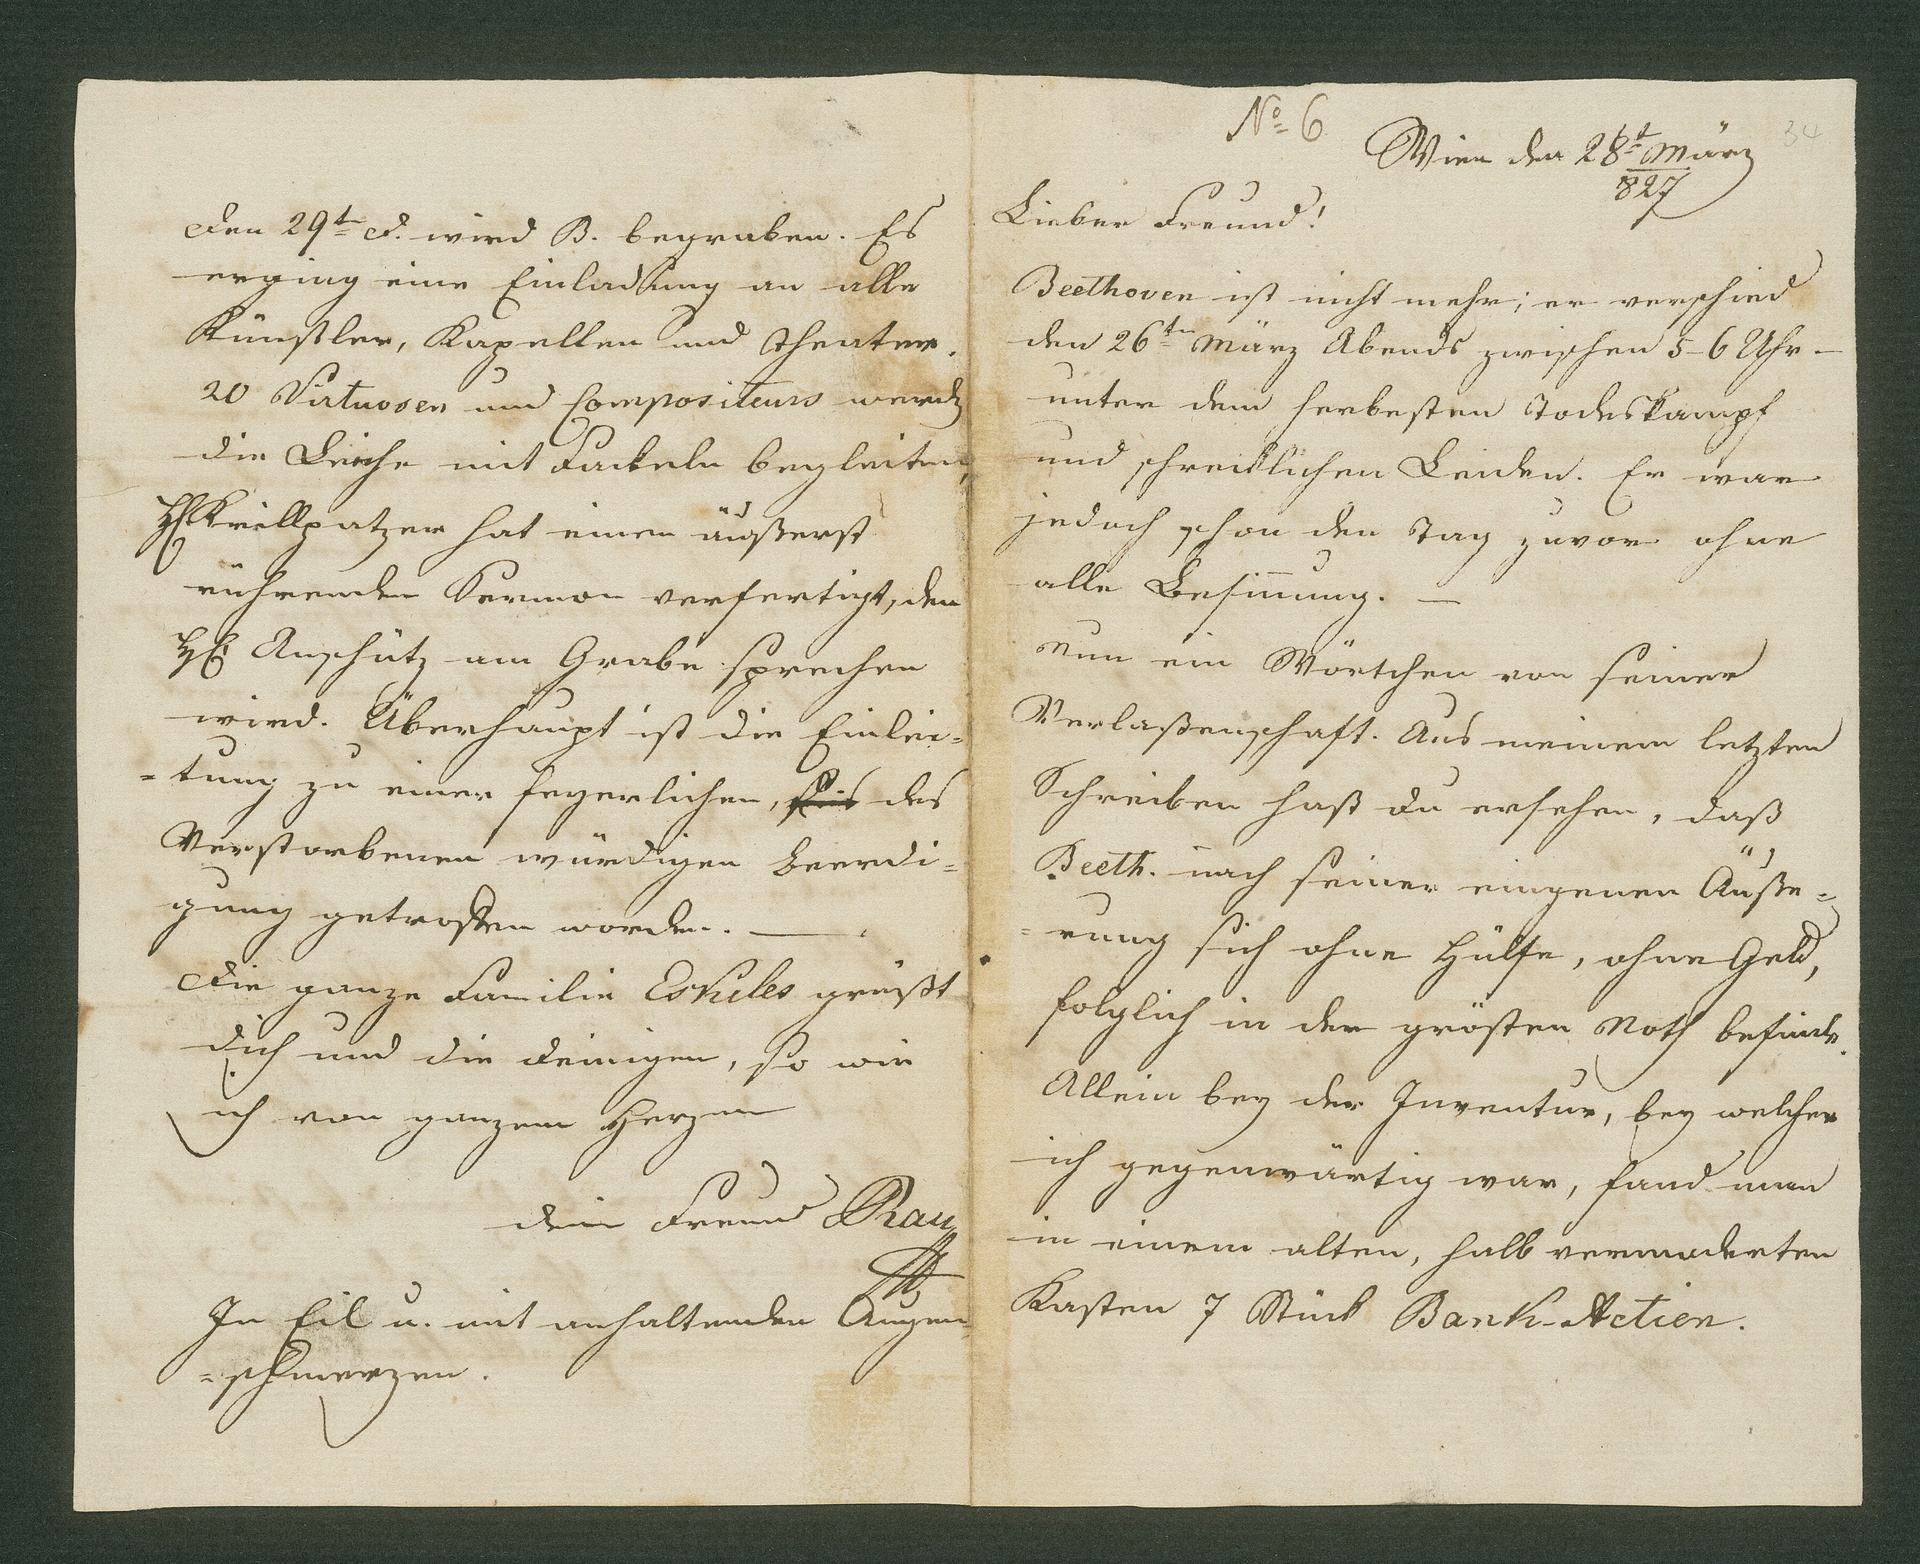 No 6
34
Wien den 28t März
827
Lieber Freund!
Beethoven ist nicht mehr; er verschied
den 26ten März Abends zwischen 5-6 Uhr –
unter dem herbesten Todeskampf
und schrecklichen Leiden. Er war
jedoch schon den Tag zuvor ohne
alle Besinnung. –
Nun ein Wörtchen von seiner
Verlaßenschaft. Aus meinem letzten
Schreiben hast du ersehen, daß
Beeth. nach seiner eingenen Äuße=
=rung sich ohne Hülfe, ohne Geld,
folglich in der grösten Noth befinde.
Allein bey der Inventur, bey welcher
ich gegenwärtig war, fand man
in einem alten, halb vermoderten
Kasten 7 Stück Bank-Actien.
Den 29ten d. wird B. begraben. Es
erging eine Einladung an alle
Künstler, Kapellen und Theater.
20 Virtuosen und Compositeurs werden
die Leiche mit Fackeln begleiten,
H Krillpatzer hat einen äußerst
rührenden Sermon verfertigt, den
H Anschütz am Grabe sprechen
wird. Überhaupt ist die Einlei=
=tung zu einer feyerlichen, des
Verstorbenen würdigen Beerdi=
gung getroffen worden. —
Die ganze Familie Eskeles grüßt
dich und die deinigen, so wie
ich von ganzem Herzen
dein Freund Rau
In Eil u. mit anhaltenden Augen=
=schmerzen.